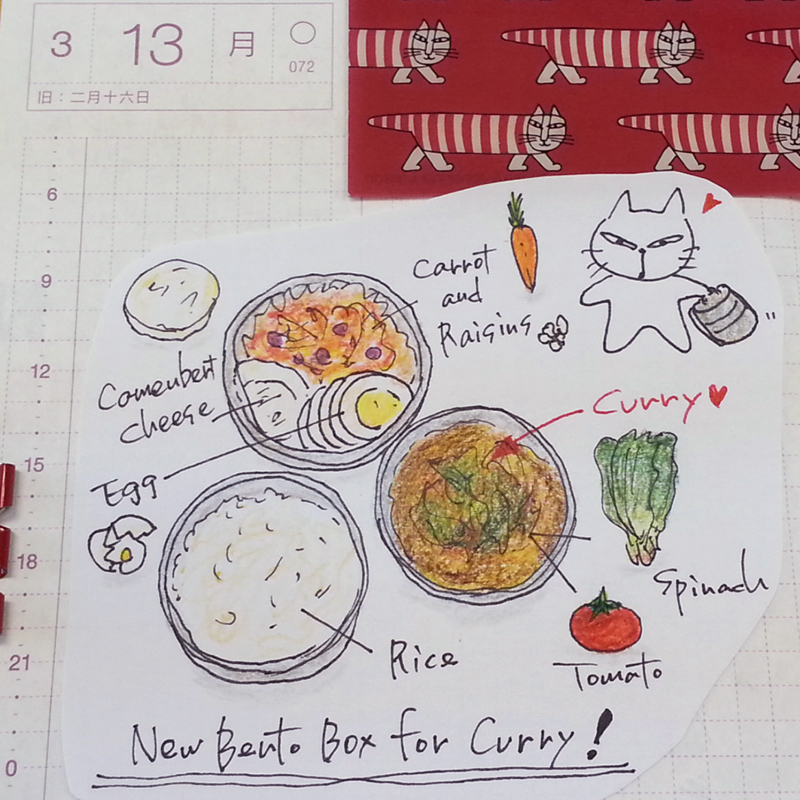 3 13 月 ○
072
旧：二月十六日
6
9
12
15
18
21
0
Carrot
and
Raisins
Camenbert
cheese
Curry♥
Egg
Spinach
Rice
Tomato
New Bento Box for Curry!